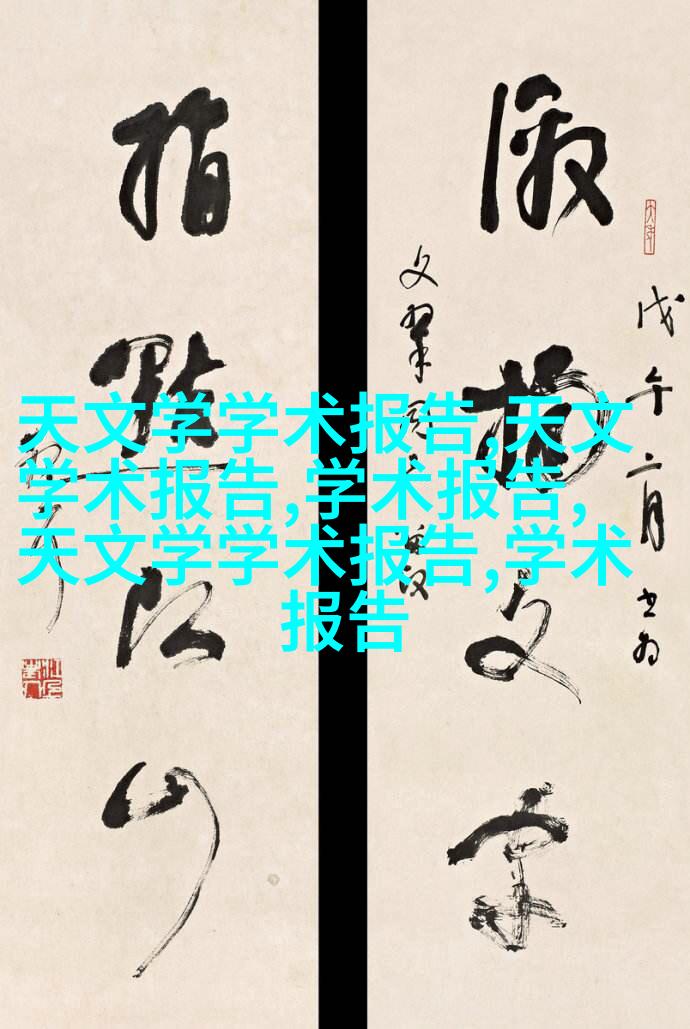 激揚文字
戊午二月书为
指點江山
天文学学术报告,天文
学术报告,学术报告,
天文学学术报告,学术
报告